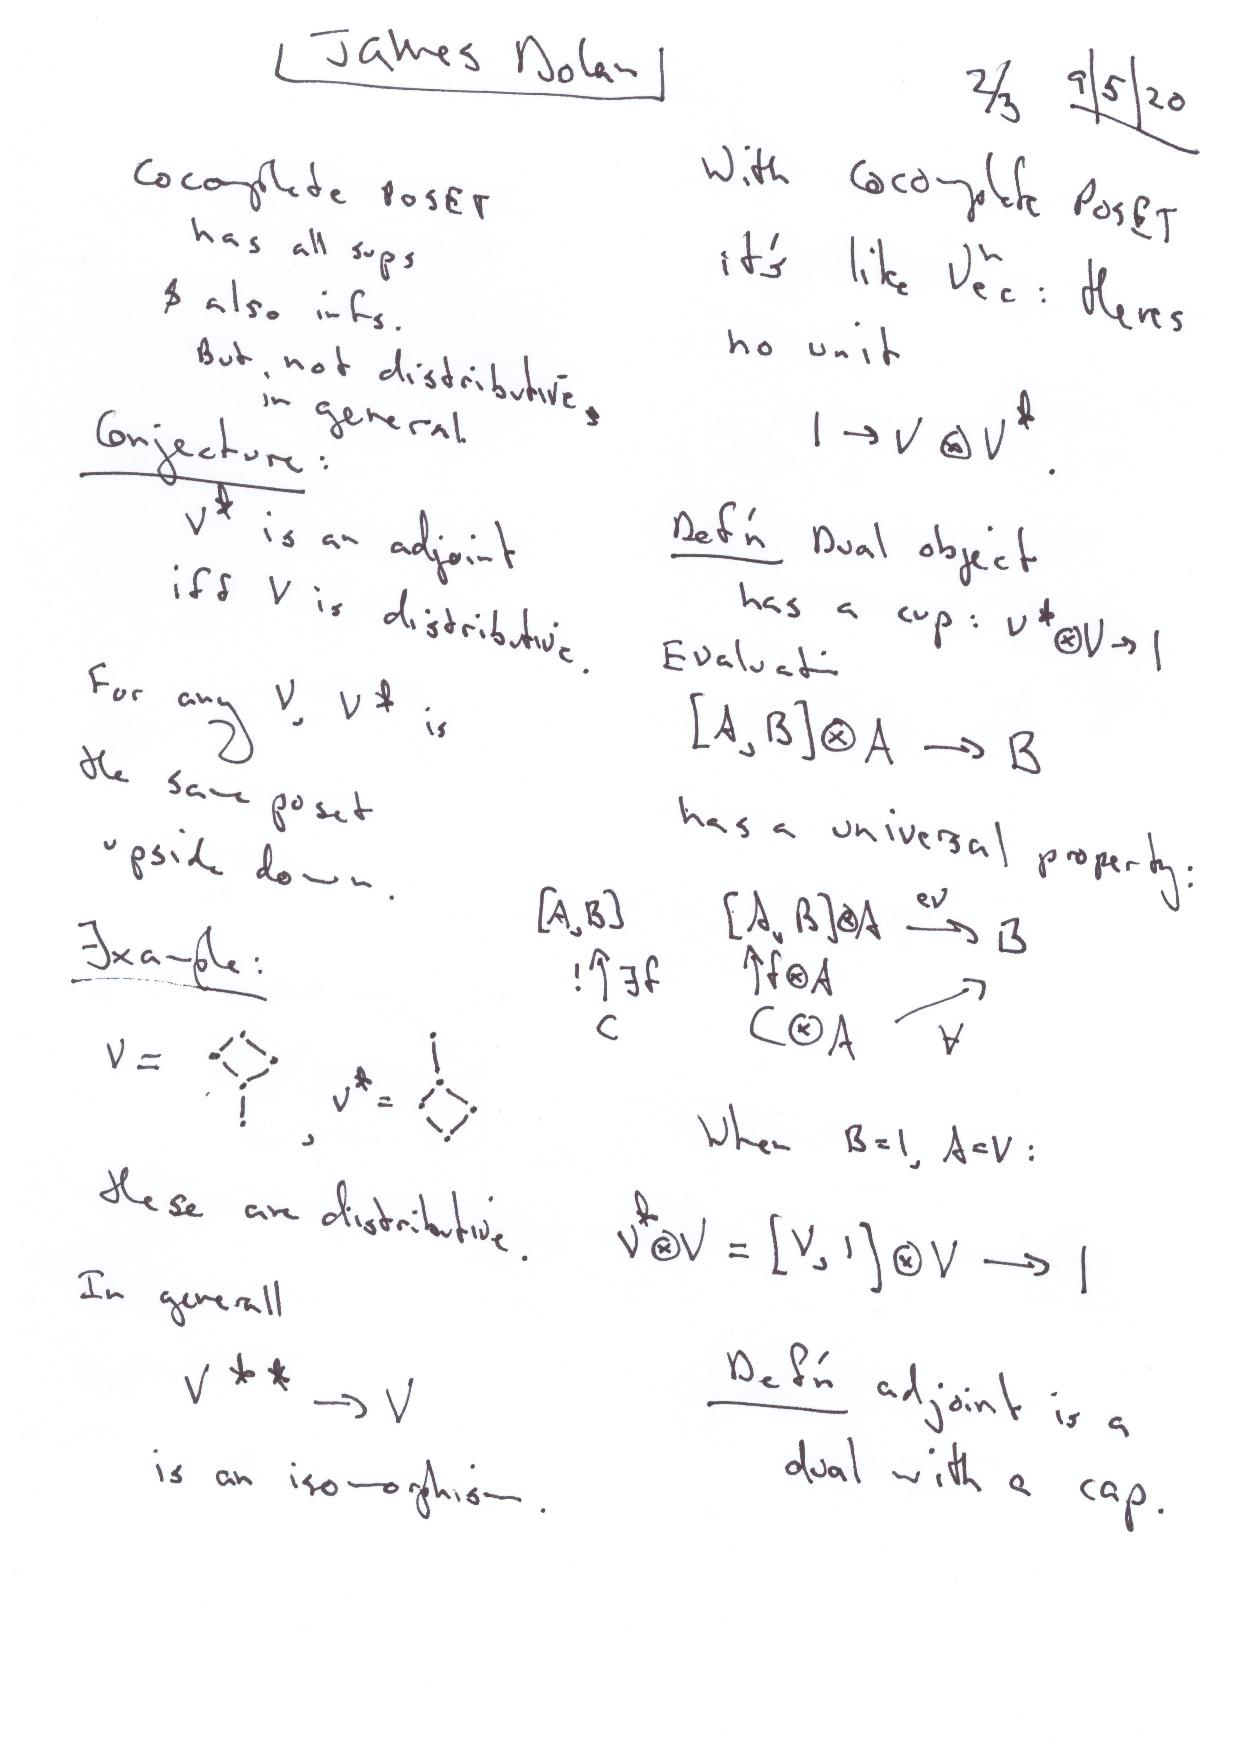 James Dolan
2/3 9/5/20
Cocomplete POSET
has all sups
& also infs.
But, not distributive,
in general
Conjecture:
V* is an adjoint
iff V is distributive.
For any V, V* is
the same poset
upside down.
Example:
V = , V* =
these are distributive.
In generall
V** → V
is an isomorphism.
With cocomplete POSET
it's like Vec^n: theres
no unit
1 → V ⊗ V*.
Def'n Dual object
has a cup: V* ⊗ V → 1
Evaluati
[A, B] ⊗ A → B
has a universal property:
[A, B] [A, B] ⊗ A ev → B
! ↑ ∃f ↑ f ⊗ A
C C ⊗ A ↗ ∀
When B = 1, A = V:
V* ⊗ V = [V, 1] ⊗ V → 1
Def'n adjoint is a
dual with a cap.